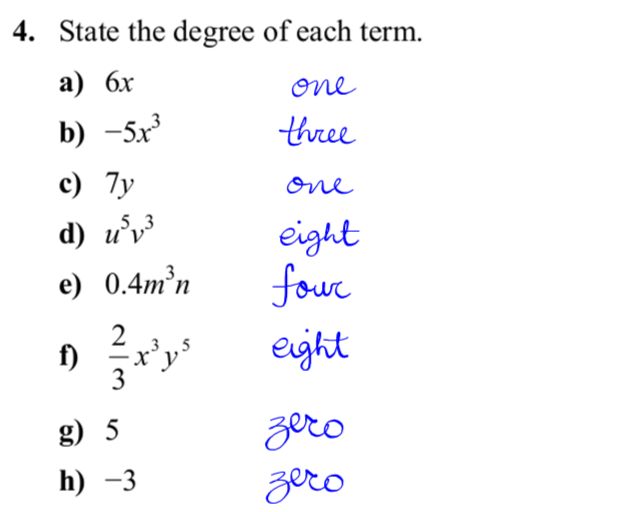 4. State the degree of each term.
a) 6x one
b) −5x³ three
c) 7y one
d) u⁵v³ eight
e) 0.4m³n four
f) 2/3 x³y⁵ eight
g) 5 zero
h) −3 zero